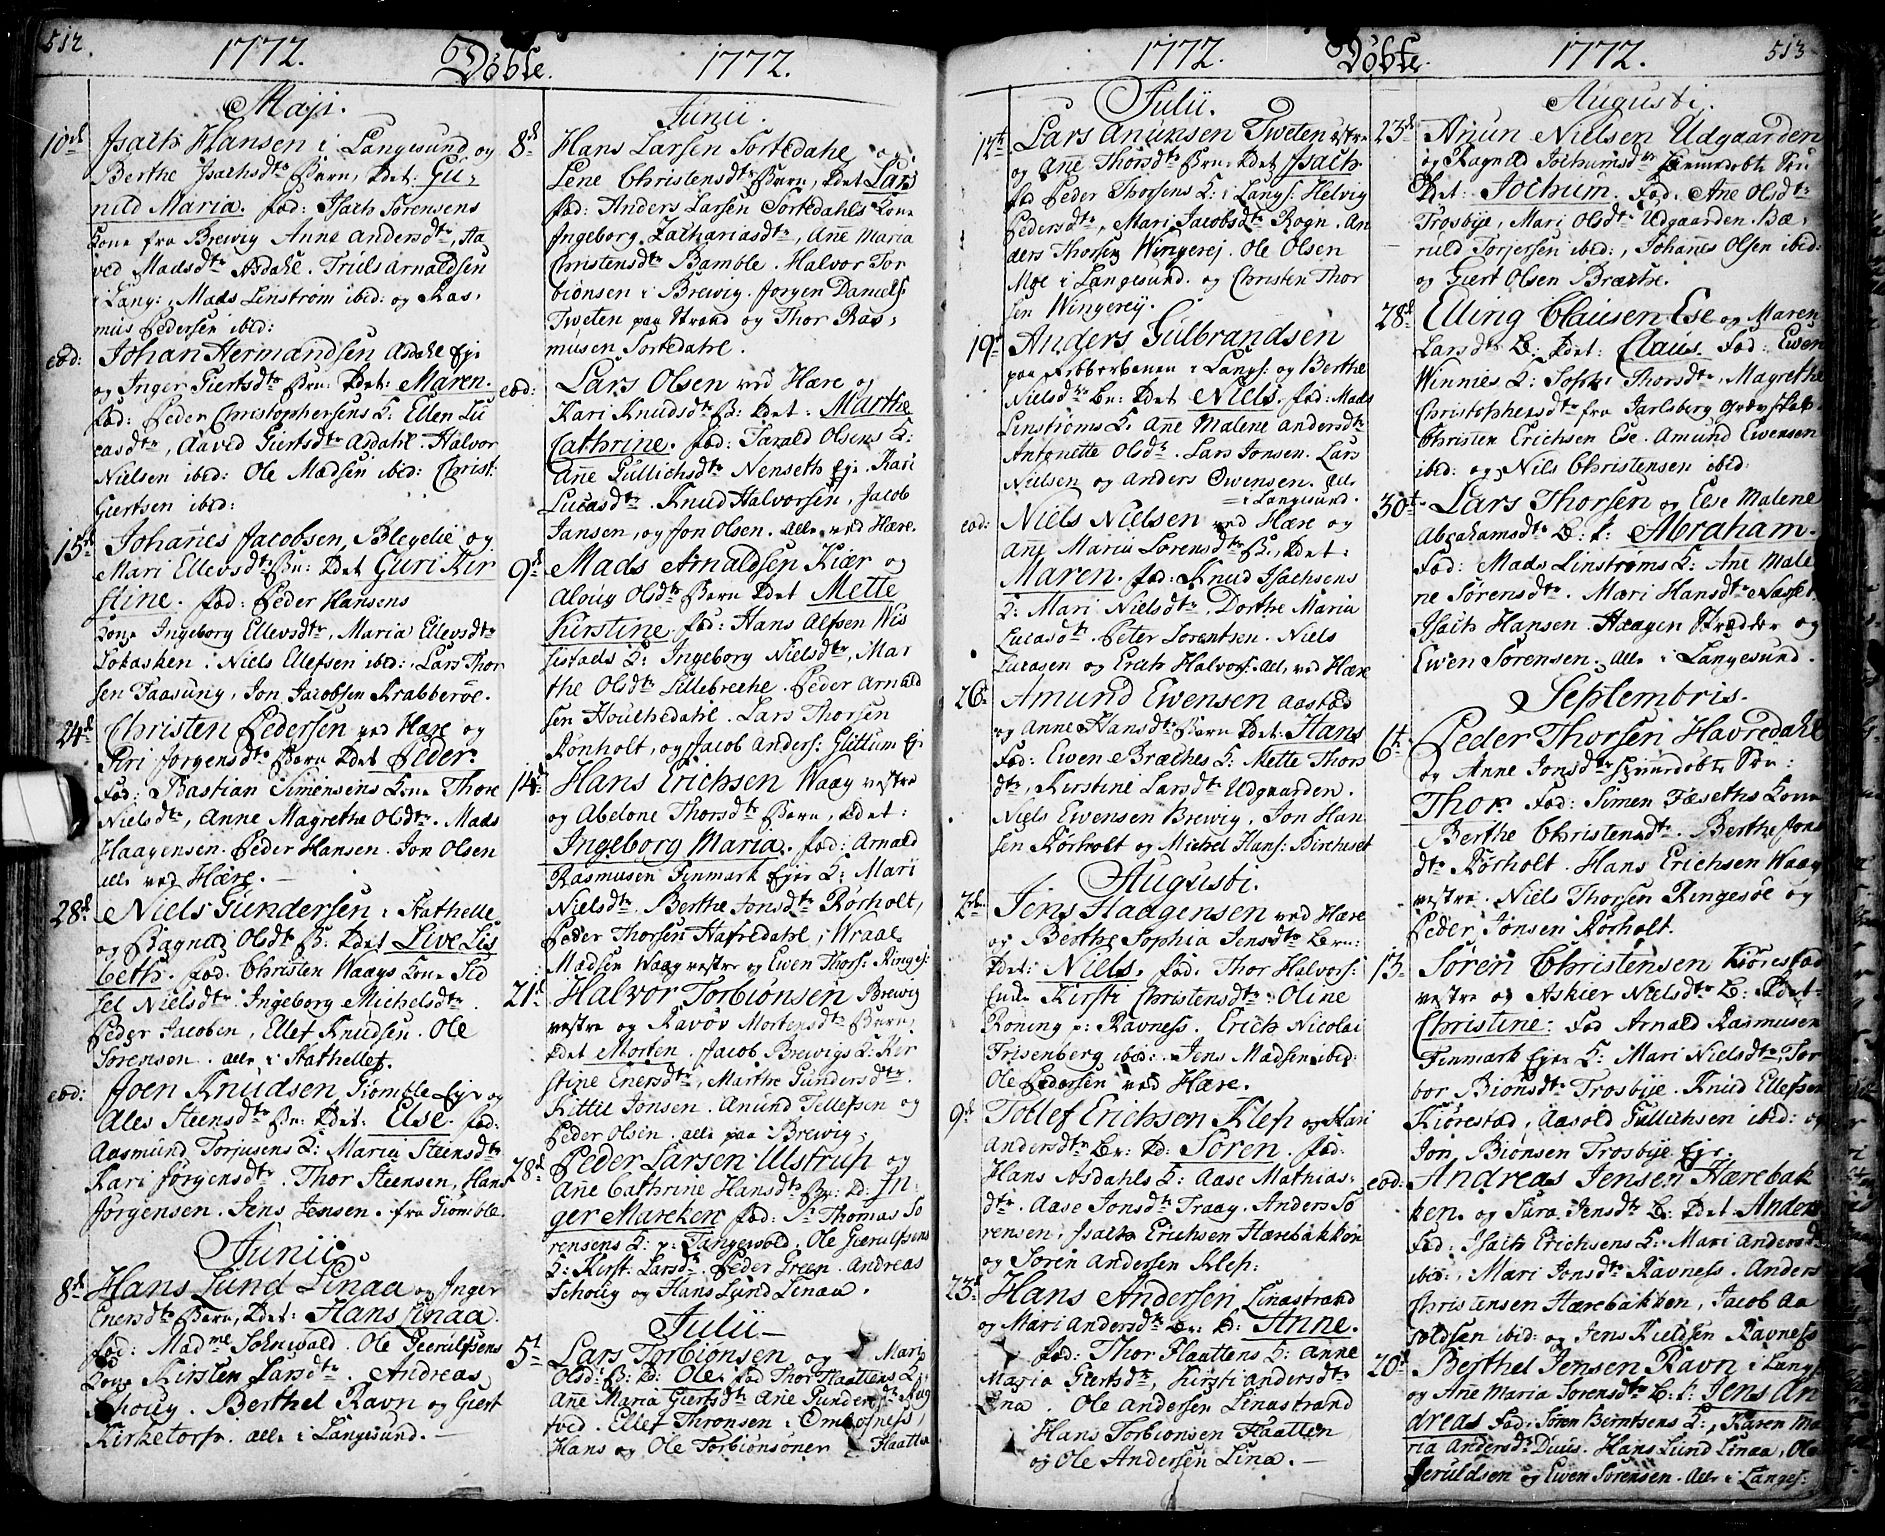 512.
1772. Döbte. 1772.
Maji.
10de Isach Hansen i Langesund og
Berthe Isachsdtr Barn, Kdet: Gu-
nild Maria. fad: Isach Sörensens
Kone fra Brewig Anne Andersdtr, Aa
ved Madsdtr Asdahl. Truls Arnaldsen
i Lang:, Mads Linström ibid: og Ras,
mus Pedersen ibid:
eod: Johan Hermandsen Asdahl Eje
og Inger Giertsdtr Bn: Kdet: Maren.
fad: Peder Christophersens K: Ellen Lu
casdtr, Aaved Giertsdtr Asdahl. Halvor
Nielsen ibid: Ole Madsen ibid: Christ:
Giertsen ibid:
15de Johanes Jacobsen, Blegelie og
Mari Ellevsdtr Bn: Kdet Guri Kir
stine. fad: Peder Hansens
Kone Ingeborg Ellevsdtr, Maria Ellevsdtr
Niels Ellefsen ibid:, Lars Thor
sen Taasung, Jon Jacobsen Krabberöe.
24de Christen Pedersen ved Hære og
Siri Jorgensdtr Barn Kdet Peder.
Fad: Bastian Simonsens Kone Thore
Nielsdtr, Anne Magrethe Olsdtr. Mads
Haagensen. Peder Hansen. Jon Olsen
alle ved Hære.
28de Niels Gundersen i Stathelle
og Ragnild Olsdtr B: Kdet Live Lis
beth. fad: Christen Waags Kone Sid
sel Nielsdtr. Ingeborg Michelsdtr.
Peder Jacobsen, Ellef Knudsen. Ole
Sörensen. alle i Stathelle.
eod: Joen Knudsen, Giömble Eje og
Ales Steensdtr Bn: Kdet: Else. fad:
Aasmund Torjusens K: Maria Steensdtr
Kari Jörgensdtr. Thor Steensen, Hans
Jörgensen. Jens Jensen. fra Giömble.
Junii.
8de Hans Lund Linaa og Inger
Enersdtr Barn, Kdet: Hans Linaa.
fad: Madme Ole Gierulfsens
Kone Kirsten Larsdtr. Andreas
Schoug. Berthel Ravn og Giert
Kirketorp. alle i Langesund.
Junii.
8de Hans Larsen Sortedahl og
Lene Christensdtr Barn, Kdet Lars
fad: Anders Larsen Sortedahls Kone
Ingeborg Zachariasdtr, Añe Maria
Christensdtr Bamble. Halvor Tor
biönsen i Brewig. Jörgen Daniels:
Tweten paa Strand og Thor Ras,
musen Sortedahl.
eod: Lars Olsen ved Hære og
Kari Knudsdtr B: Kdet: Marthe
Cathrine. fad: Tarald Olsens K:
Añe Gullichsdtr Nenseth Eje. Kari
Lucasdtr. Knud Halvorsen, Jacob
Jansen, og Jon Olsen. alle ved Hære.
9de Mads Arnaldsen Kiær og
Aloug Olsdtr Barn Kdet Mette
Kirstine. fad: Hans Alfsen Wis
sestads K: Ingeborg Nielsdtr, Mar
the Olsdtr Lillebrethe. Peder Arnald
sen Houlhedahl. Lars Thorsen
Rönholt, og Jacob Anders: Glittum Eje
14de Hans Erichsen Waag vestre
og Abelone Thorsdtr Barn, Kdet:
Ingeborg Maria. fad: Arnald
Rasmusen Finmark Ejes K: Mari
Nielsdtr. Berthe Jonsdtr Rörholt,
Peder Thorsen Hafredahl, Wraal
Madsen Waag vestre og Ewen Thors: Ringes:
21de Halvor Torbiönsen Brewig
vestre og Ravöv Mortensdtr Barn,
Kdet Morten. Jacob Brewigs K: Kir
stine Enersdtr, Marthe Gundersdtr.
Kittil Jonsen. Anund Tellefsen og
Peder Olsen. alle paa Brewig.
28de Peder Larsen Ulstrup og
Añe Cathrine Hansdtr Bn: Kd: In-
ger Mareken fad: Sr Thomas Sö
rensens K: p: Tangewold, Ole Gierulfsens
K: Kirst: Larsdtr. Peder Green. Andreas
Schoug og Hans Lund Linaa.
Julii
5te Lars Torbiönsen og Mari
Olsd: B: Kd: Ole. fad Thor Flaattens K:
Añe Maria Giertsdtr Ane Gundersdtr Rug
tved. Ellef Thronsen i Ombogsness,
Hans og Ole Torbiönsöner Flaatten
513
1772. Döbte. 1772.
Julii.
12te Lars Anunsen Tweten vestre
og Ane Thorsdtr Brn: Kdet Isach
fad Peder Thorsens K: i Langs: Helvig
Pedersdtr, Mari Jacobsdtr Rogn. An
ders Thorsen Wingerej. Ole Olsen
Moe i Langesund. og Christen Thor
sen Wingerej.
19de Anders Gulbrandsen
paa i Langs: og Berthe
Nielsdtr Bn: Kdet Niels. fad: Mads
Linströms K: Añe Malene Andersdtr
Antonette Olsdtr. Lars Jonsen. Lars
Nielsen og Anders Owensen. alle
i Langesund.
eod: Niels Nielsen ved Hære og
Añe Maria Sörensdtr B:, Kdet:
Maren. fad: Knud Isachsens
K: Mari Nielsdtr, Dorthe Maria
Lucasdtr. Peter Sorentsen. Niels
Lucasen og Erich Halvors: alle ved Hære
26de Amund Ewensen Aastad
og Anne Hansdtr Barn Kdet: Hans
Fad: Ewen Bræthes K: Mette Thors
dtr, Kirstine Larsdtr Udgaarden.
Niels Ewensen Brewig, Jon Han
sen Rörholt og Michel Hans: Kircheset
Augusti.
2den Jens Haagensen ved Hære
og Berthe Sophia Jensdtr Brn:
Kdet: Niels. fad: Thor Halvors:
Enke Kirsti Christensdtr. Oline
Roning p: Ravness. Erich Nicolai
Frisenberg ibid: Jens Madsen ibid:
Ole Pedersen ved Hære.
9de Tollef Erichsen Klep og Kari
Andersdtr Br: Kd: Sören. fad:
Hans Asdahls K: Aase Mathias-
dtr. Aase Jonsdtr Traag. Anders Sö
rensen, Isach Erichsen Hærebakken
og Sören Andersen Klep.
23de Hans Andersen Linastrand
og Mari Andersdtr Br: Kd: Anne.
fad: Thor Flaattens K: Anne
Maria Giertsdtr, Kirsti Andersdtr
Lina. Ole Andersen Linastrand
Hans Torbiönsen Flaatten
og Ole Andersen Lina.
Augusti.
23de Anun Nielsen Udgaarden
og Ragnild Jochumsdtr hiemedöbte Bn:
Kdet: Jochum. Fad: Ane Olsdtr
Trosbye, Mari Olsdtr Udgaarden. Bæ,
ruld Torjersen ibid:, Johanes Olsen ibid:
og Giert Olsen Bræthe.
28de Elling Clausen Ese og Maren
Larsdtr B: Kdet: Claus. Fad: Ewen
Winnies K: Sophi Thorsdtr, Magrethe
Christophersdtr fra Jarlsberg Grevskab.
Christen Erichsen Ese. Amund Ewensen
ibid: og Nils Christensen ibid:
30te Lars Thorsen og Else Malene
Abrahamsdtr B: K: Abraham.
Fad: Mads Linströms K: Ane Male
ne Sörensdtr. Mari Hansdtr Næsset.
Isach Hansen. Haagen Skrædder og
Ewen Sörensen. alle i Langesund.
Septembris.
6te Peder Thorsen Havredahl
og Anne Jonsdtr hiemedöbte Bn:
Thor. Fad: Simen Fæseths Kone
Berthe Christensdtr. Berthe Jons
dtr Rörholt. Hans Erichsen Waag
vestre. Niels Thorsen Ringesöe og
Peder Jonsen Rörholt.
13. Sören Christensen Kiörestad
vestre og Askier Nielsdtr B: Kdet-
Christine: Fad Arnald Rasmusen
Finmark Ejes K: Mari Nielsdtr, Tor
bor Biönsdtr Trosbye. Knud Ellefsen
Kiörestad, Aasold Gullichsen ibid: og
Jon Biönsen Trosbye Eje.
eod: Andreas Jensen Hærebak
ken. og Sara Jensdtr B: Kdet Anders
Fad: Isach Erichsens K: Mari Andersdtr
ibid:, Mari Jonsdtr Ravness. Anders
Christensen Hærebakken, Jacob Aa
soldsen ibid: og Jens Kieldsen Ravness
20de Berthel Jensen Ravn i Langs
og Ane Maria Sörensdtr B: K: Jens An
dreas Fad: Sören Berntsens K:, Karen Ma
ria Andersdtr Duus. Hans Lund Linaa, Ole
Jeruldsen og Ewen Sorensen. alle i Langes: